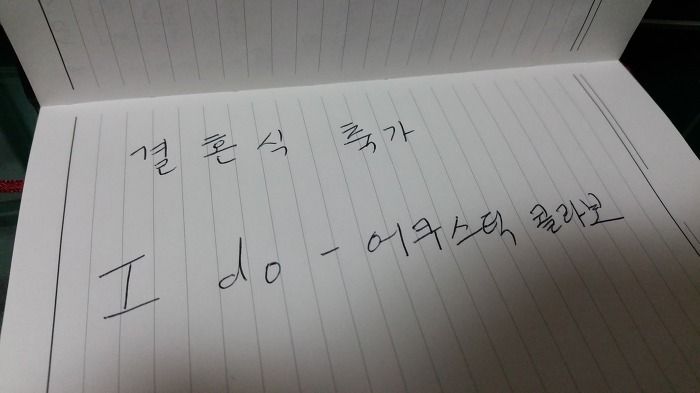 결혼식 축가
I do - 어쿠스틱 콜라보